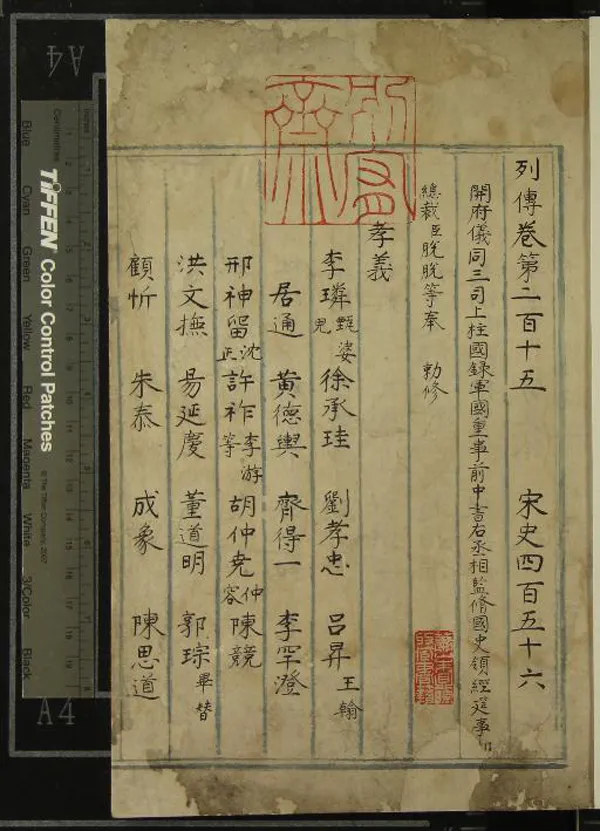 列傳卷第二百十五 宋史四百五十六
開府儀同三司上柱國錄軍國重事前中書右丞相監脩國史領經筵事
總裁臣脫脫等奉 勅修
孝義
李璘 甄婆兒 徐承珪 劉孝忠 呂昇 王翰
居通 黃德輿 齊得一 李罕澄
邢神留 沈正 許祚 李游等 胡仲堯 仲容 陳競
洪文撫 易延慶 董道明 郭琮 畢贊
顧忻 朱泰 成象 陳思道
A4
A4
Centimetres
Inches
TIFFEN Color Control Patches
© The Tiffen Company, 2007
Blue
Cyan
Green
Yellow
Red
Magenta
White
3/Color
Black